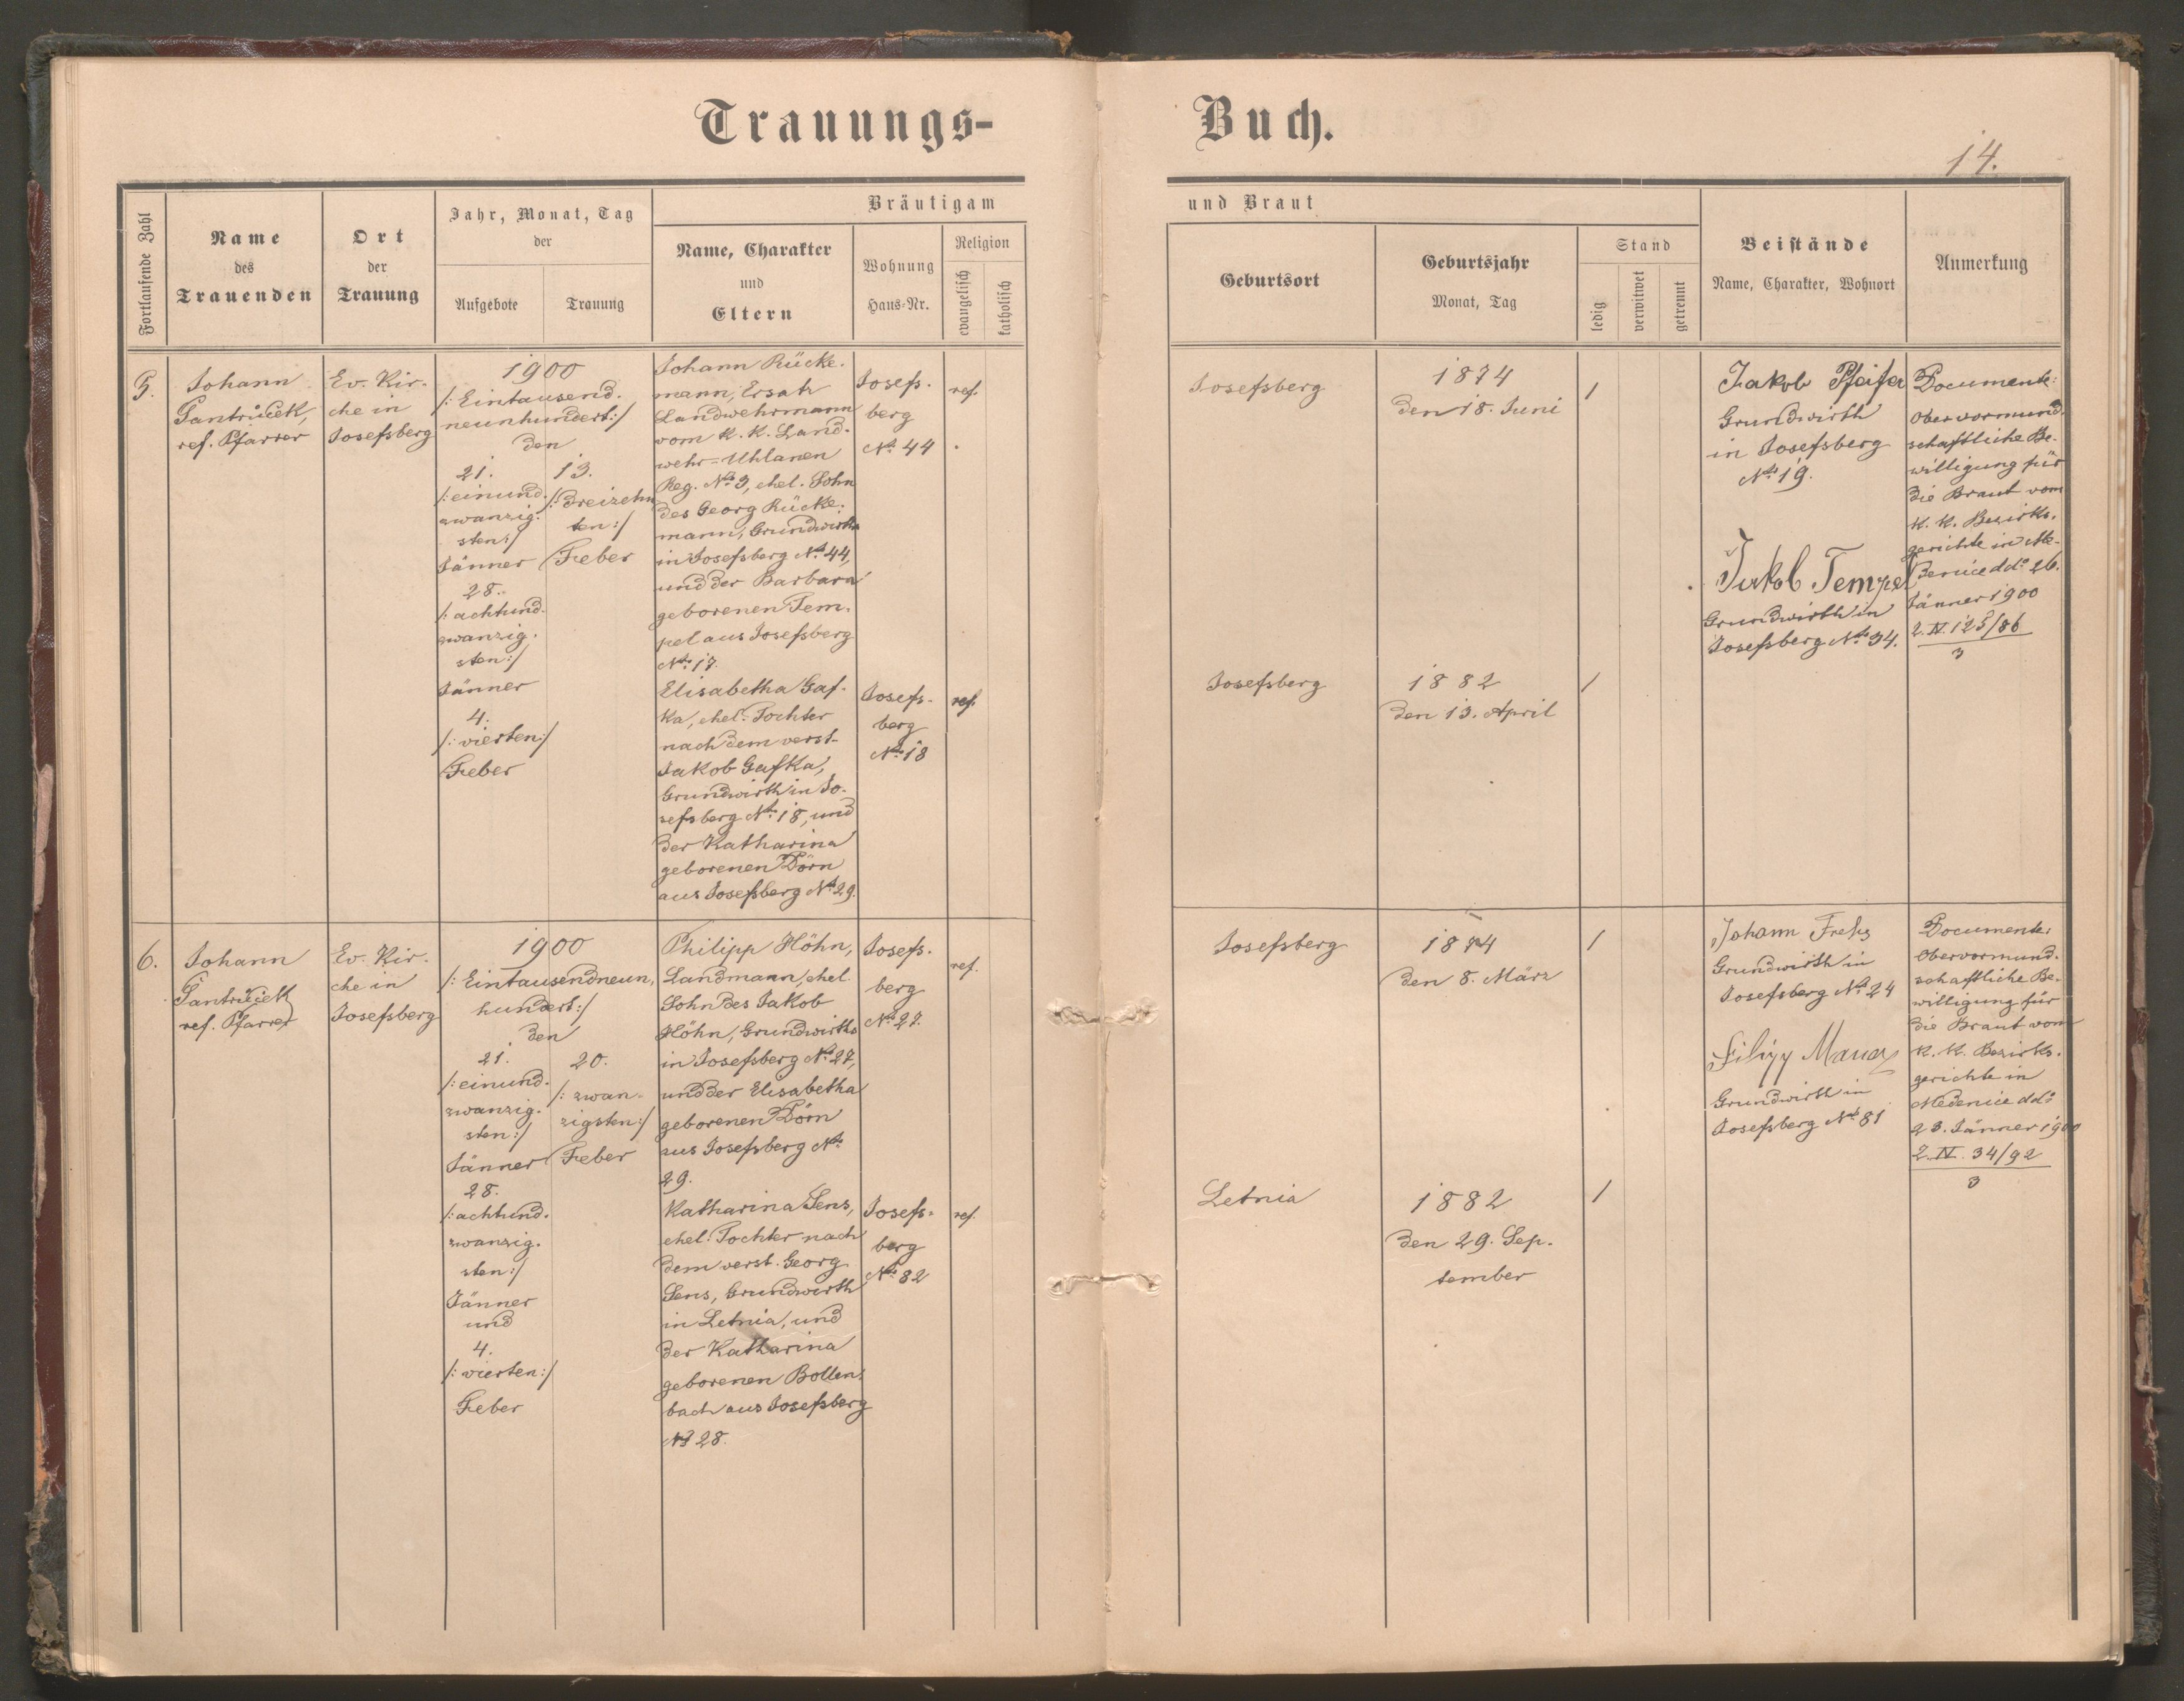 Trauungs-
Buch.
14.
Fortlaufende Zahl
Name
des
Trauenden
Ort
der
Trauung
Jahr, Monat, Tag
der
Aufgebote
Trauung
Bräutigam
Name, Charakter
und
Eltern
Wohnung
Haus-Nr.
Religion
evangelisch
katholisch
und Braut
Geburtsort
Geburtsjahr
Monat, Tag
Stand
ledig
verwitwet
getrennt
Beistände
Name, Charakter, Wohnort
Anmerkung
5.
Johann
Gantruček,
ref. Pfarrer
Ev. Kir-
che in
Josefsberg
1900
/: Eintausend.
neunhundert:/
den
21.
/: einund.
zwanzig.
sten:/
Jänner
28.
/: achtund.
zwanzig.
sten:/
Jänner
4.
/: vierten:/
Feber
13.
/: Dreizehn
ten:/
Feber
Johann Rücke.
mann, Ersatz
Landwehrmann
vom k. k. Land.
wehr-Uhlanen
Reg. No 3, ehel. Sohn
des Georg Rücke.
mann, Grundwirths
in Josefsberg No 44,
und der Barbara
geborenen Tem.
pel aus Josefsberg
No 17.
Josefs.
berg
No 44
ref.
Josefsberg
1874
den 18. Juni
1
Jakob Pfeifer
Grundwirth
in Josefsberg
No 19.
Jakob Tempel
Grundwirth in
Josefsberg No 34.
Documente:
Obervormund.
schaftliche Be.
willigung für
die Braut vom
k. k. Bezirks.
gerichte in Me-
denice ddo 26.
Jänner 1900
2. IV. 125/86
3
Elisabetha Gaf.
ka, ehel. Tochter
nach dem verst.
Jakob Gafka,
Grundwirth in Jo.
sefsberg No 18, und
der Katharina
geborenen Dörn
aus Josefsberg No 29.
Josefs.
berg
No 18
ref.
Josefsberg
1882
den 13. April
1
6.
Johann
Gantruček
ref. Pfarrer
Ev. Kir.
che in
Josefsberg
1900
/: Eintausendneun.
hundert:/
den
21.
/: einund.
zwanzig.
sten:/
Jänner
28.
/: achtund.
zwanzig.
sten:/
Jänner
und
4.
/: vierten:/
Feber
20.
/: zwan.
zigsten:/
Feber
Philipp Höhn,
Landmann, ehel.
Sohn des Jakob
Höhn, Grundwirths
in Josefsberg No 27,
und der Elisabetha
geborenen Dörn
aus Josefsberg No
29.
Josefs.
berg
No 27.
ref.
Josefsberg
1874
den 8. März
1
Johann
Grundwirth in
Josefsberg No 24
Filipp Manz
Grundwirth in
Josefsberg No 81
Documente:
Obervormund.
schaftliche Be.
willigung für
die Braut vom
k. k. Bezirks.
gerichte in
Medenice ddo
23. Jänner 1900
2. IV. 34/92
3
Katharina Sens,
ehel. Tochter nach
dem verst. Georg
Sens, Grundwirth
in Letnia, und
der Katharina
geborenen Bollen.
bach aus Josefsberg
No 28.
Josefs.
berg
No 82
ref.
Letnia
1882
den 29. Sep.
tember
1